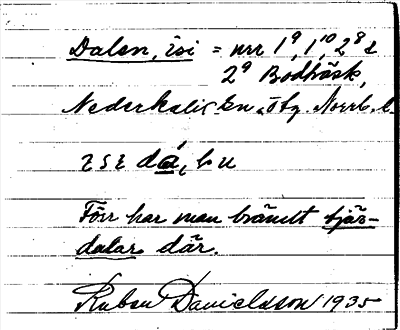 Dalen, isi = nrr 1⁹, 1¹⁰, 2⁸ &
2⁹ Bodträsk,
Nederkalix sn. Öbg. Norrb. l.
dá, b u
Förr har man bränt tjär-
dalar där.
Ruben Danielsson 1935